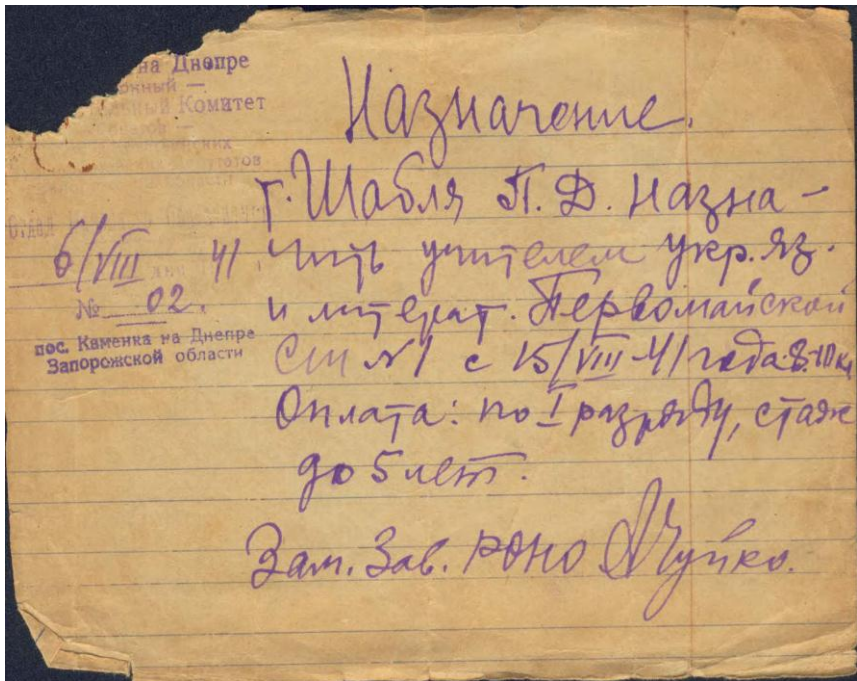 на Днепре
Комитет
6/VIII 41
№ 02.
пос. Каменка на Днепре
Запорожской области
Назначение.
г. Шабля П. Д. назна-
чить учителем укр. яз.
и литерат. Первомайской
СШ №1 с 15/VIII-41 года 8-10 кл
Оплата: по I разряду, стаж
до 5 лет.
Зам. Зав. РОНО Чуйко.